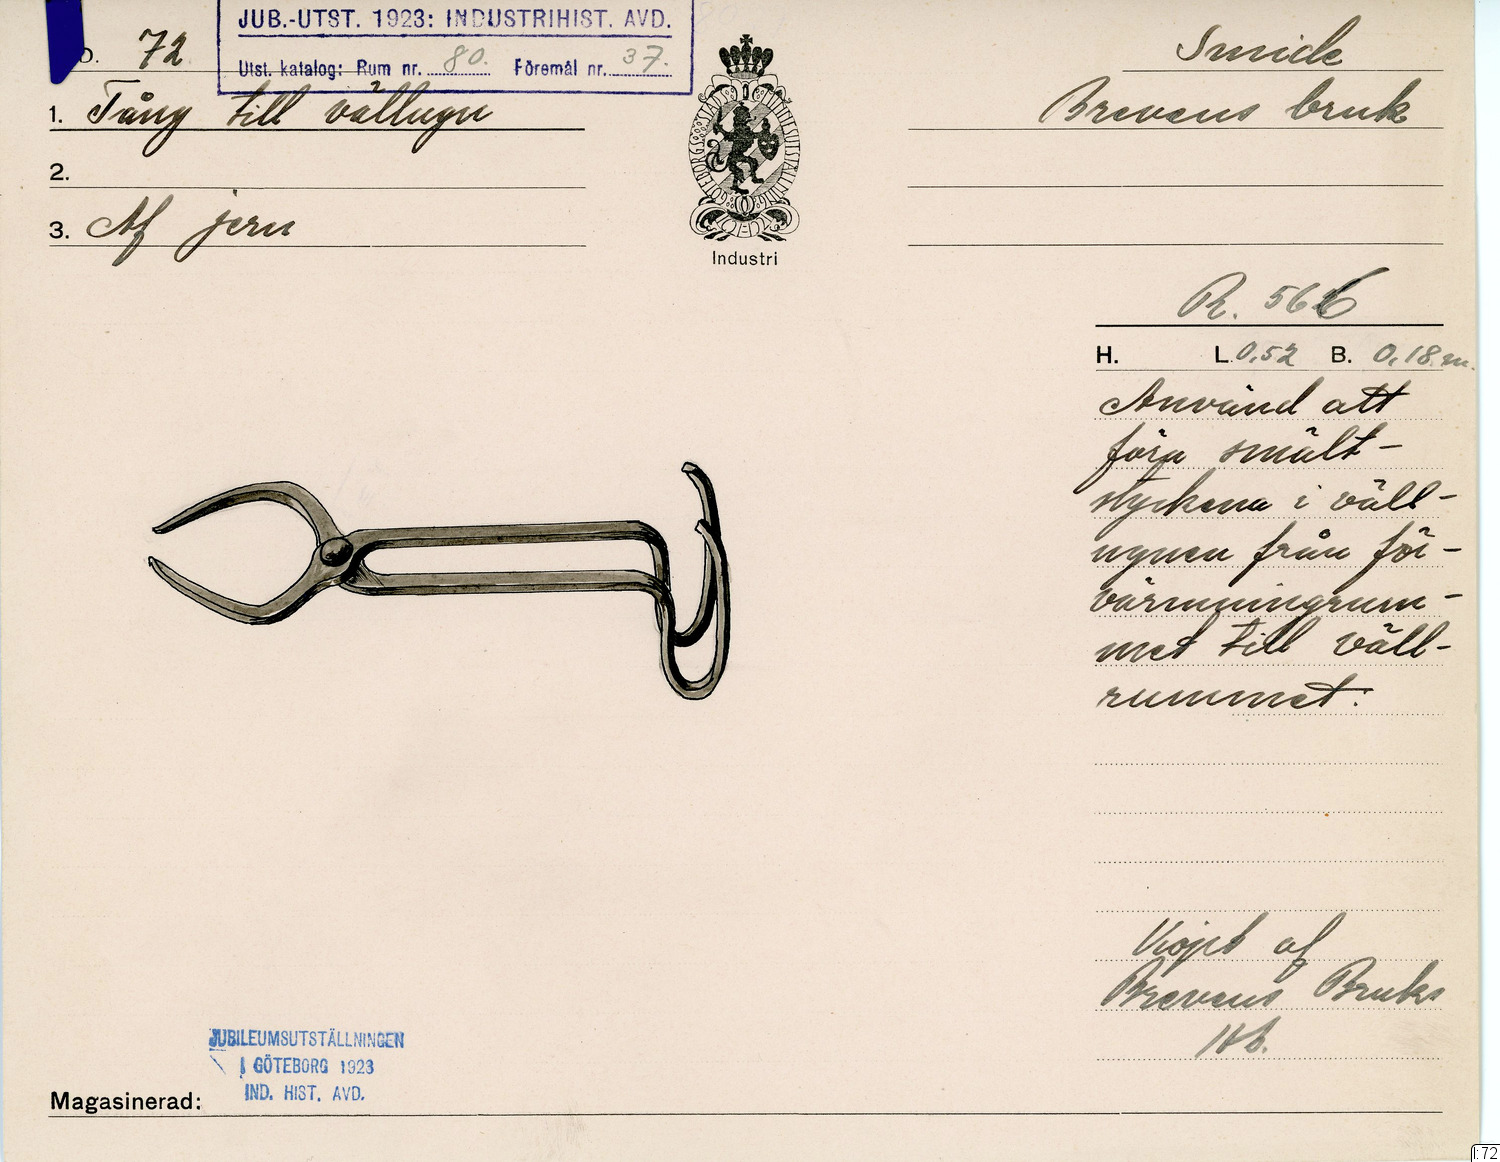 JUB.-UTST. 1923: INDUSTRIHIST. AVD.
Utst. katalog: Rum nr. 80. Föremål nr. 37.
D. 72
1. Tång till vällugn
2.
3. Af jern
GÖTEBORGS STADS MINNESUTSTÄLLNING
Industri
Smide
Brevens bruk
R. 566
H. L. 0,52 B. 0,18 m.
Använd att
föra smält-
styckena i väll-
ugnen från för-
värmningrum-
met till väll-
rummet.
Köpt af
Brevens Bruks
JUBILEUMSUTSTÄLLNINGEN
I GÖTEBORG 1923
IND. HIST. AVD.
Magasinerad:
I:72